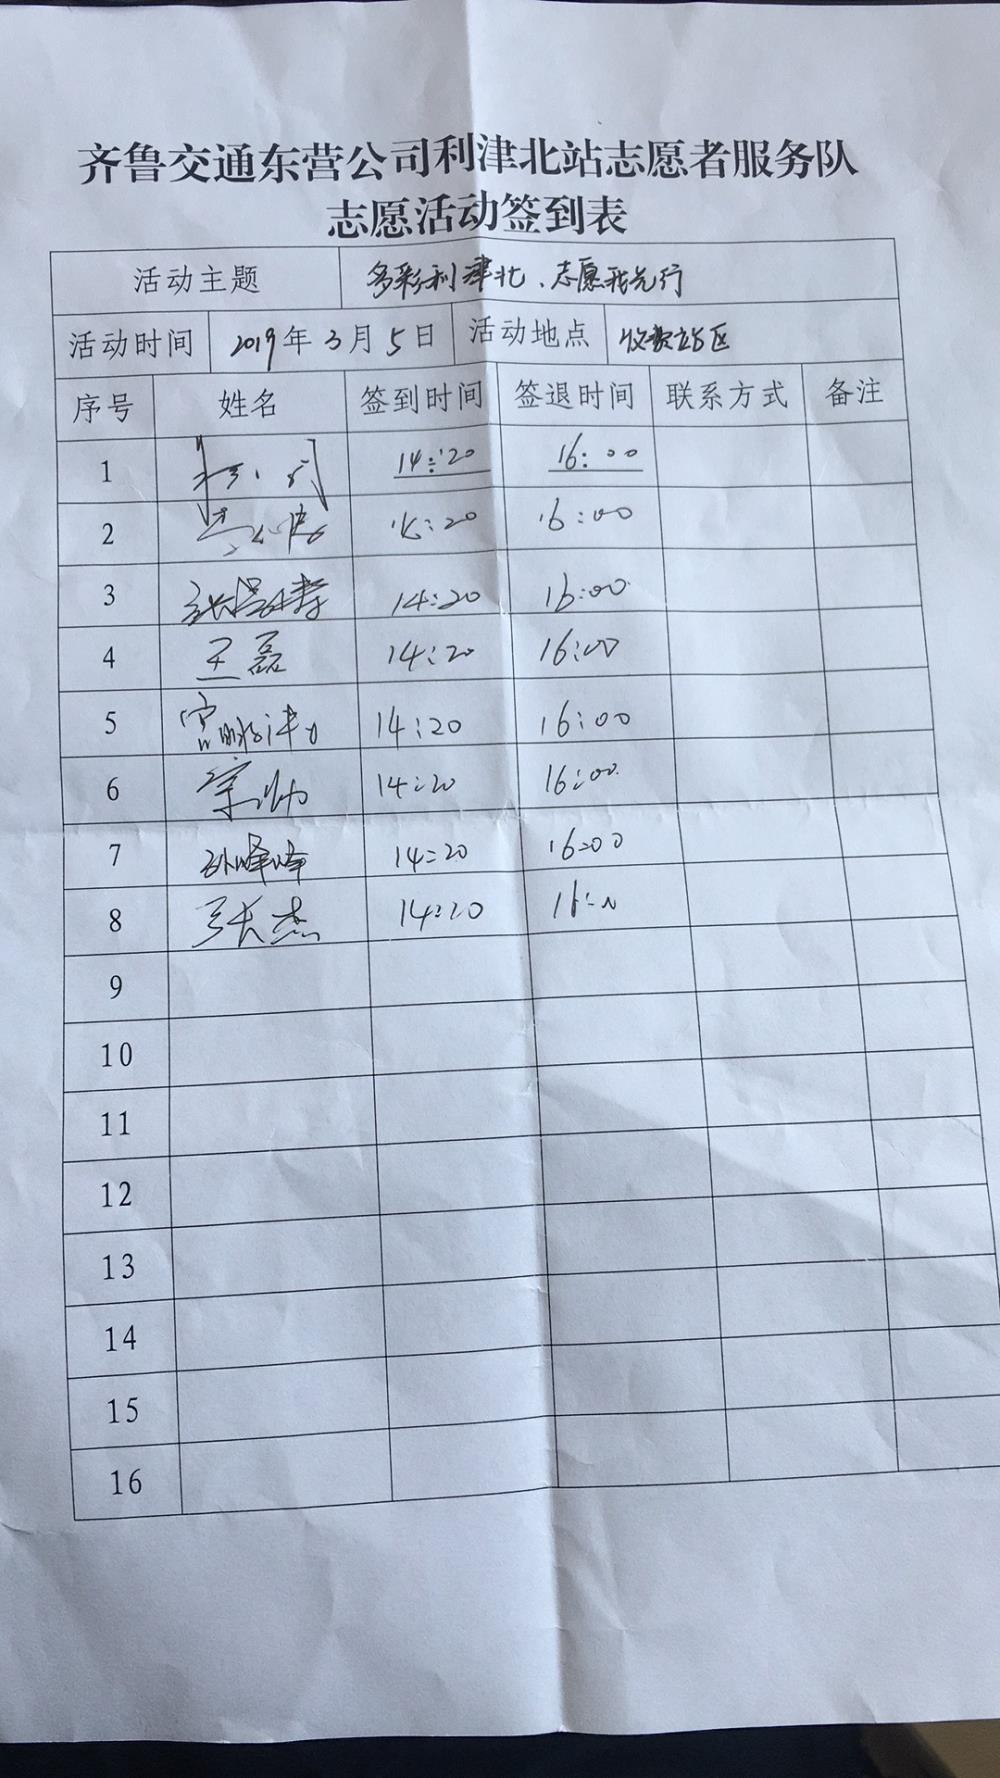 齐鲁交通东营公司利津北站志愿者服务队
志愿活动签到表
活动主题 多彩利津北、志愿我先行
活动时间 2019年3月5日 活动地点 收费站区
序号 姓名 签到时间 签退时间 联系方式 备注
1 14:20 16:00
2 14:20 16:00
3 14:20 16:00
4 王磊 14:20 16:00
5 14:20 16:00
6 宗帅 14:20 16:00
7 孙峰峰 14:20 16:00
8 张杰 14:20
9
10
11
12
13
14
15
16